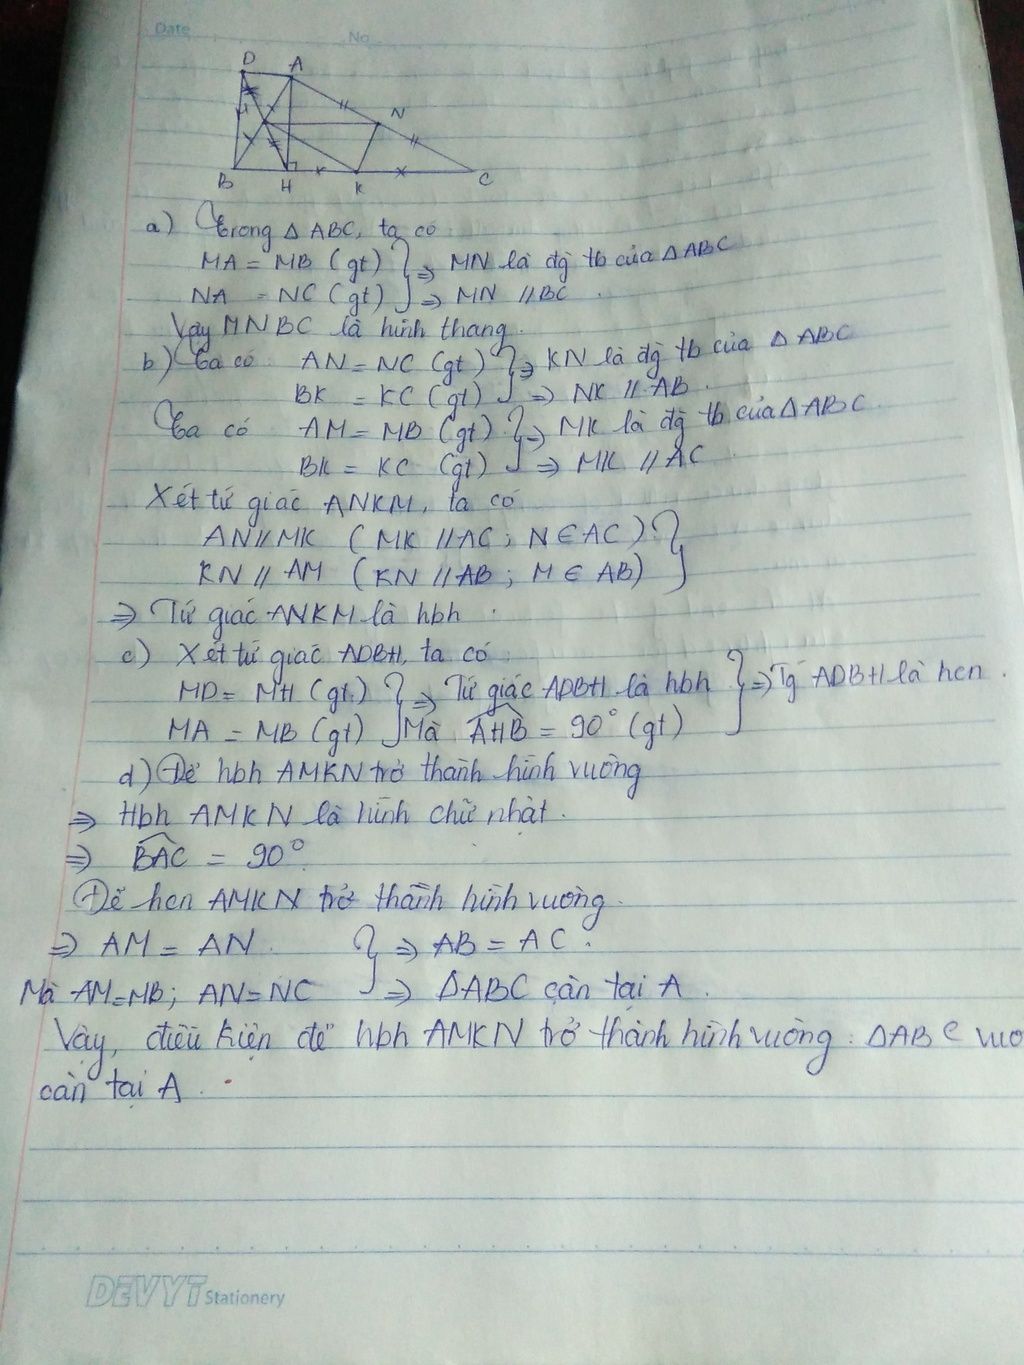 Date
No
D A
N
M
B H K C
a) Trong Δ ABC, ta có
MA = MB (gt) } ⇒ MN là đg tb của ΔABC
NA = NC (gt) } ⇒ MN // BC.
Vậy MNBC là hình thang.
b) Ta có AN = NC (gt) } ⇒ KN là đg tb của Δ ABC
BK = KC (gt) } ⇒ NK // AB.
Ta có AM = MB (gt) } ⇒ MK là đg tb của Δ ABC.
BK = KC (gt) } ⇒ MK // AC
Xét tứ giác ANKM, ta có
AN // MK (MK // AC; N ∈ AC) }
KN // AM (KN // AB; M ∈ AB) }
⇒ Tứ giác ANKM là hbh.
c) Xét tứ giác ADBH, ta có
MD = MH (gt) } ⇒ Tứ giác ADBH là hbh } ⇒ Tg ADBH là hcn.
MA = MB (gt) } Mà AHB = 90° (gt)
d) Để hbh AMKN trở thành hình vuông
⇒ Hbh AMKN là hình chữ nhật.
⇒ BAC = 90°
Để hcn AMKN trở thành hình vuông.
⇒ AM = AN. } ⇒ AB = AC.
Mà AM=MB; AN=NC } ⇒ ΔABC cân tại A.
Vậy, điều kiện để hbh AMKN trở thành hình vuông: ΔABC vuô
cân tại A.
DEVYT Stationery